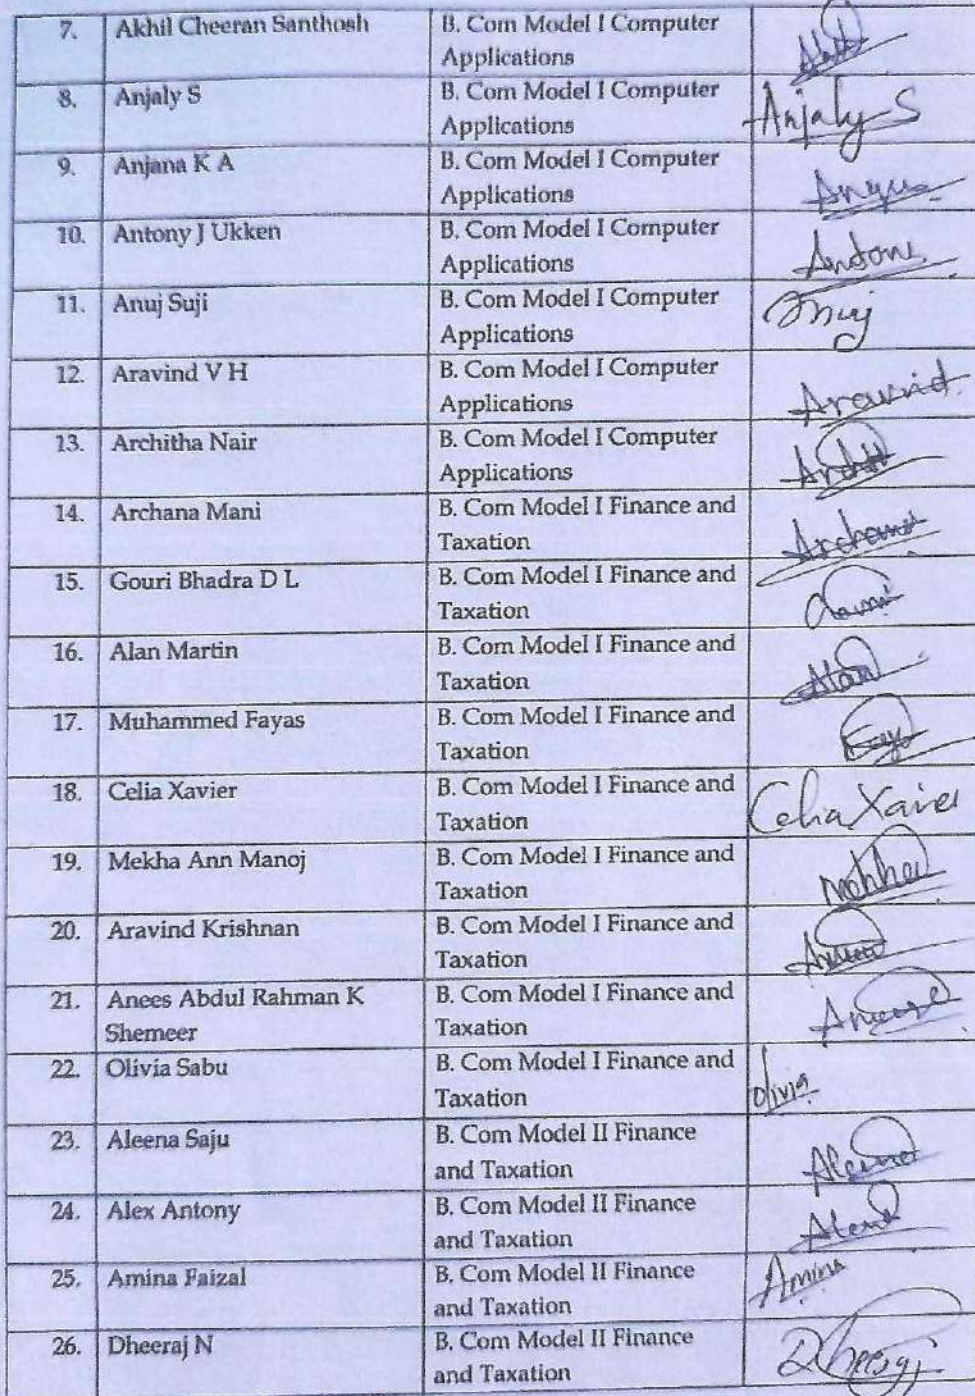 7. Akhil Cheeran Santhosh B. Com Model I Computer
Applications
8. Anjaly S B. Com Model I Computer Anjaly S
Applications
9. Anjana K A B. Com Model I Computer
Applications
10. Antony J Ukken B. Com Model I Computer
Applications Antony
11. Anuj Suji B. Com Model I Computer Anuj
Applications
12. Aravind V H B. Com Model I Computer
Applications Aravind
13. Architha Nair B. Com Model I Computer
Applications
14. Archana Mani B. Com Model I Finance and
Taxation Archana
15. Gouri Bhadra D L B. Com Model I Finance and
Taxation
16. Alan Martin B. Com Model I Finance and
Taxation Alan
17. Muhammed Fayas B. Com Model I Finance and
Taxation
18. Celia Xavier B. Com Model I Finance and Celia Xavier
Taxation
19. Mekha Ann Manoj B. Com Model I Finance and
Taxation
20. Aravind Krishnan B. Com Model I Finance and
Taxation
21. Anees Abdul Rahman K B. Com Model I Finance and
Shemeer Taxation
22. Olivia Sabu B. Com Model I Finance and
Taxation Olivia
23. Aleena Saju B. Com Model II Finance
and Taxation Aleena
24. Alex Antony B. Com Model II Finance
and Taxation
25. Amina Faizal B. Com Model II Finance Amina
and Taxation
26. Dheeraj N B. Com Model II Finance
and Taxation Dheeraj